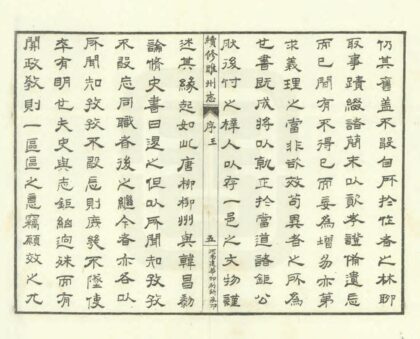 仍其舊蓋不敢自附於作者之林聊
取事蹟綴諸簡末以資考證備遺忘
而已間有不得已而妄為增易亦第
求義理之當非欲效苟異者之所為
此書既成將以就正於當道諸鉅公
然後付之梓人以存一邑之文物謹
續修睢州志
序三
五
述其緣起如此唐柳柳州與韓昌黎
論脩史書曰退之但以所聞知孜孜
不敢忘同職者後之繼今者亦各以
所聞知孜孜不敢忘則庶幾不墜使
卒有明也夫史與志鉅細迥殊而有
關政教則一區區之愚竊願效之凡